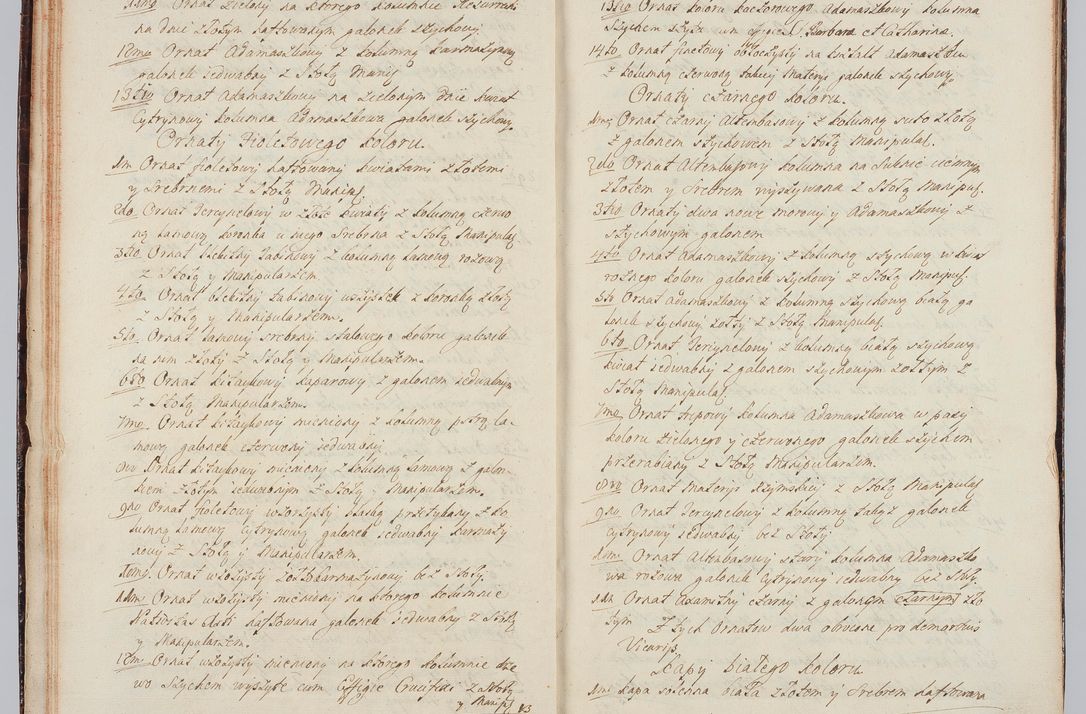 11mo Ornat Zielony na ktorego kolumnie Resurrecti
na dnie złotym haftowanym galonek szychowy
12mo Ornat Adamaszkowy z kolumną karmazynową
galonek jedwabny z Stołą Manip
13tio Ornat Adamaszkowy na zielonym dnie kwiat
Cytrynowy kolumna Adamaszkowa galonek szychowy
Ornaty Fioletowego koloru
1m Ornat fioletowy haftowany kwiatami złotemi
y srebrnemi z Stołą Manip
2do Ornat Tercynelowy w złote kwiaty z kolumną czerwo
ną lamową koronka u niego srebrna z Stołą Manipul
3tio Ornat błękitny z kolumną lamową rożową
z Stołą y Manipularzem
4to Ornat błękitny tabinowy wszystek z koronką złotą
z Stołą y Manipularzem.
5to Ornat lamowy srebrny stalowego koloru galonek
na nim złoty z Stołą y Manipularzem.
6to Ornat kitaykowy kaparowy z galonem jedwabnym
z Stołą Manipularzem.
7mo Ornat kitaykowy mieniony z kolumną pstrą la-
mową galonek czerwony jedwabny
8vo Ornat kitaykowy mieniony z kolumną lamową z galon-
kiem żołtym jedwabnym z Stołą y Manipularzem.
9no Ornat fioletowy wzorzysty przetykany z ko
lumną lamową cytrynową galonek jedwabny karmazy
nowy z Stołą y Manipularzem.
10my Ornat wzorzysty żołtokarmazynowy bez Stoły.
11mo Ornat wzorzysty mieniony na ktorego kolumnie
haftowana galonek jedwabny z Stołą
y Manipularzem.
12m Ornat wzorzysty mieniony na ktorego kolumnie drze
wo szychem wyszyte cum Effigie Crucifixi z Stołą
y Manip 13
13tio Ornat koloru kaczorowego Adamaszkowy kolumna
szychem szyta cum effigie S. Barbara et Catharina.
14to Ornat fioletowy na kształt adamaszku
z kolumną czerwoną takiey materyi galonek szychowy
Ornaty czarnego koloru.
1my Ornat czarny Altembasowy z kolumną suto złotą
z galonem szychowem z Stołą Manipul.
2do Ornat Altembasowy kolumna na suknie ciemney
złotem y srebrem wyszywana z Stołą Manipul.
3tio Ornaty dwa nowe morowy y Adamaszkowy z
szychowym galonem
4to Ornat Adamaszkowy z kolumną szychową w kwiat
rożnego koloru galonek szychowy z Stołą Manipul.
5to Ornat Adamaszkowy z kolumną szychową białą ga
lonek szychowy żołty z Stołą Manipul.
6to Ornat Tercynelowy z kolumną białą szychową
kwiat jedwabny z galonem szychowym żołtym z
Stołą Manipul
7mo Ornat trypowy kolumna Adamaszkowa w pasy
koloru zielonego y czerwonego galonek szychem
przerabiany z Stołą Manipularzem.
8vo Ornat Materyi Rzymskiey z Stołą Manipul
9no Ornat Tercynelowy z kolumną takąż galonek
cytrynowy jedwabny bez Stoły
10mo Ornat Altembasowy stary kolumna Adamaszko
wa rożowa galonek cytrynowy jedwabny bez Stoły.
11m Ornat Axamitny czarny z galonem czarnym zło
tym Z tych Ornatow dwa obrocone pro demortuis
Vicariis.
Kapy białego koloru
1mo Kapa solenna biała złotem y srebrem haftowana